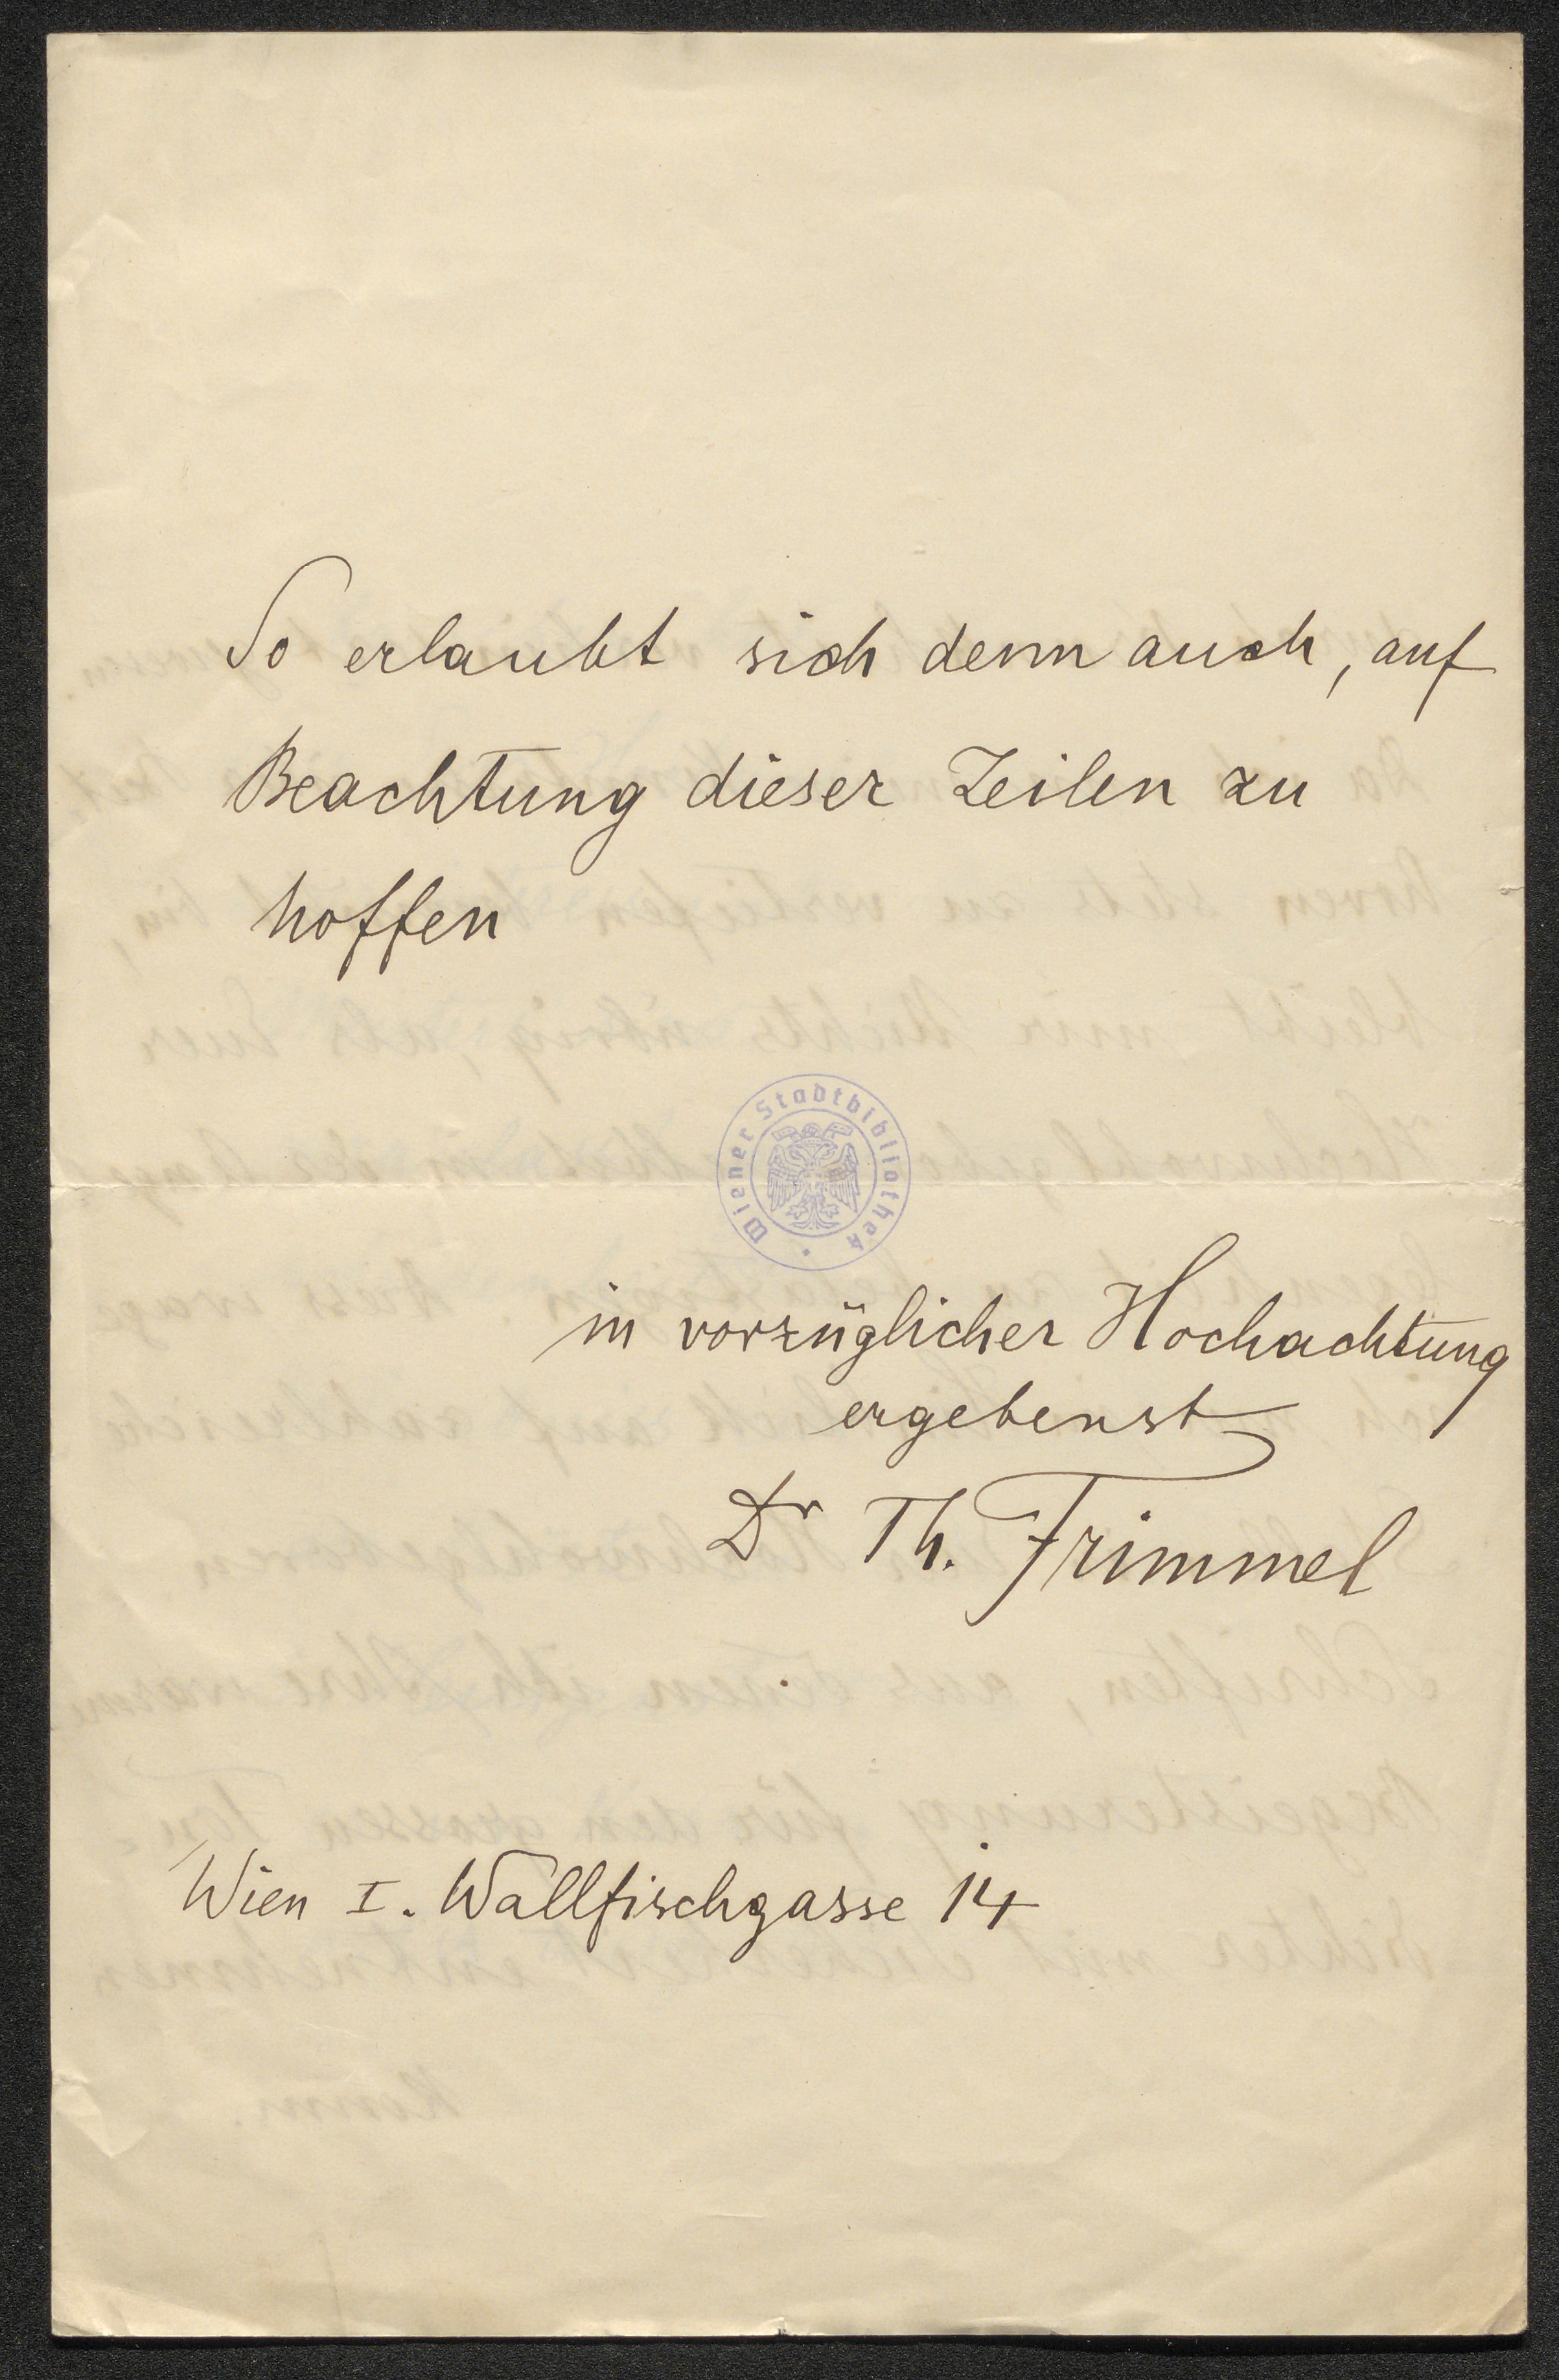 So erlaubt sich denn auch, auf
Beachtung dieser Zeilen zu
hoffen
Wiener Stadtbibliothek
in vorzüglicher Hochachtung
ergebenst
Dr Th. Frimmel
Wien I. Wallfischgasse 14